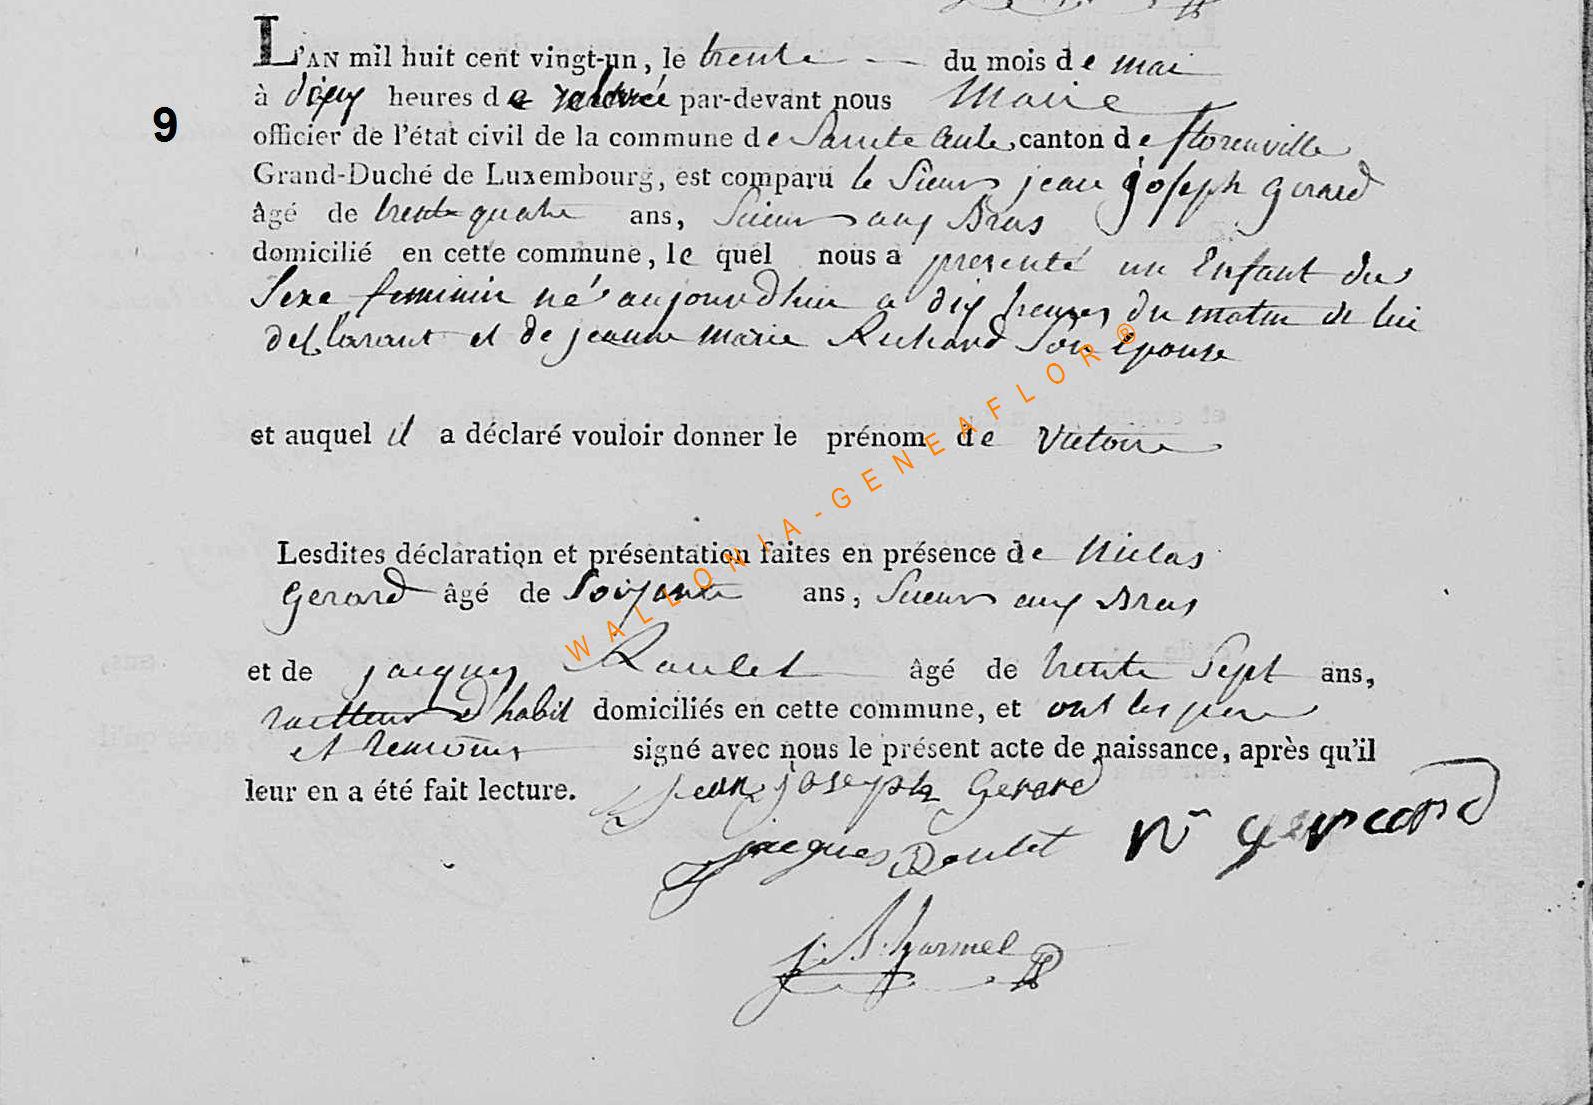 L'AN mil huit cent vingt-un, le trente du mois de mai
à heures de relevée par-devant nous Maire
9
officier de l'état civil de la commune de Sainte Cecile, canton de florenville
Grand-Duché de Luxembourg, est comparu le Sieur jean joseph gerard
âgé de trente quatre ans, Sieur aux Bras
domicilié en cette commune, le quel nous a presenté un Enfant du
Sexe feminin né aujourdhui a dix heures du matin de lui
declarant et de jeanne marie Richard Son épouse
et auquel il a déclaré vouloir donner le prénom de Victoire
Lesdites déclaration et présentation faites en présence de Nicolas
Gerard âgé de Soixante ans, Sieur aux Bras
et de jacques Roulet âgé de trente Sept ans,
d'habit domiciliés en cette commune, et ont les pere
et temoins signé avec nous le présent acte de naissance, après qu'il
leur en a été fait lecture. Jean joseph Gerard
jacques Roulet N gerard
WALLONIA-GENEAFLOR®